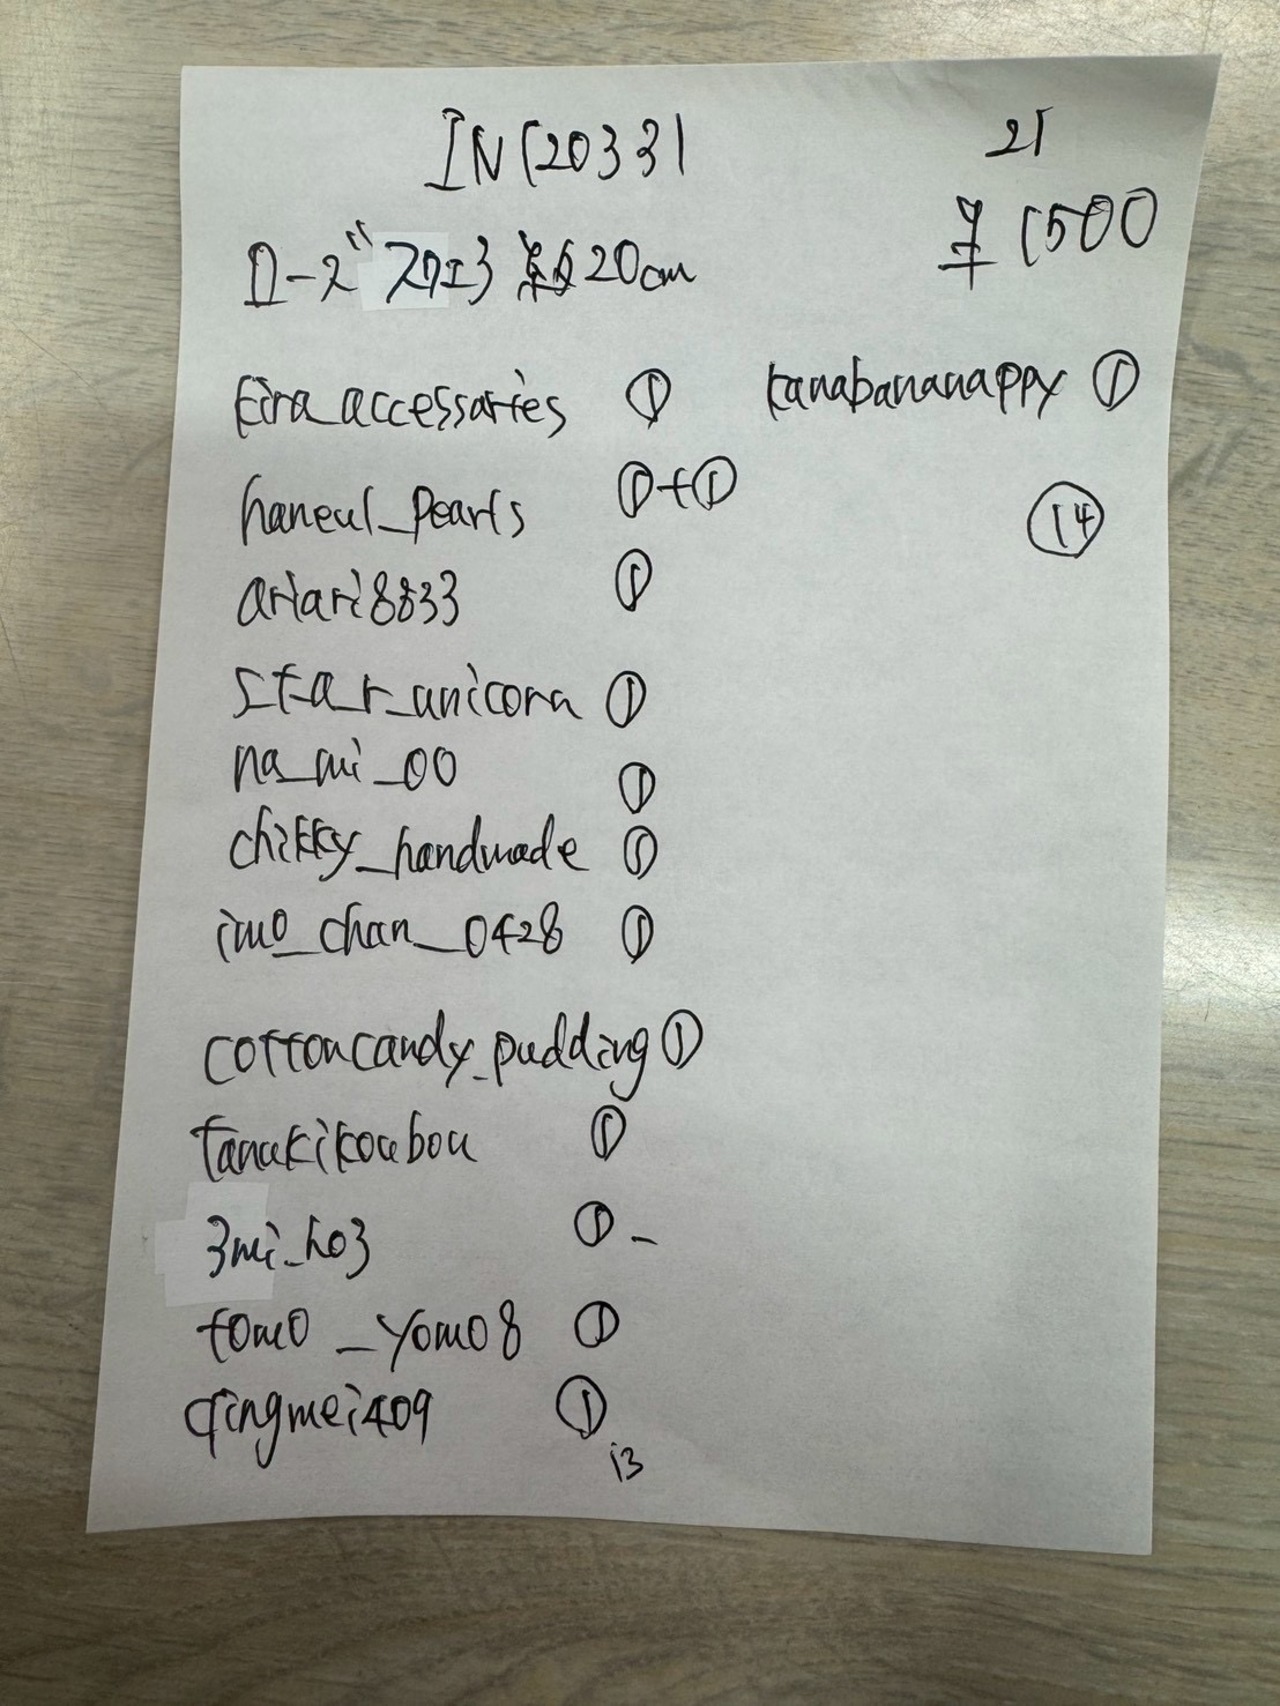 IN120331
21
ローズ スクエア 約20cm
1500
kira_accessaries ①
kanabananappy ①
haneul_pearls ①+①
⑭
ariari8833 ①
star_unicorn ①
na_mi_00 ①
chikky_handmade ①
imo_chan_0428 ①
cottoncandy_pudding ①
tanukikoubou ①
3mi_ho3 ① -
tomo_yomo8 ①
qingmei409 ①
13